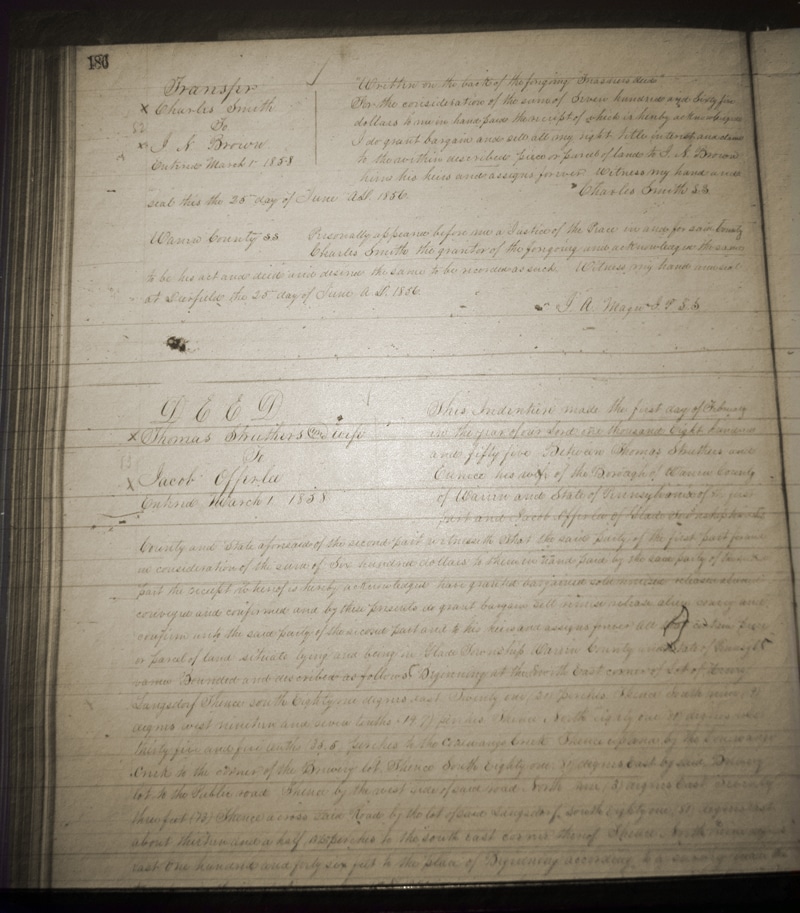 180
Transfer
Charles Smith
To
J. A. Brown
Entered March 1st 1858
"Written on the back of the forgoing deed"
For the consideration of the sum of Seven hundred and Sixty five
dollars to me in hand paid the receipt of which is hereby acknowledged
I do grant bargain and sell all my right title interest and claim
to the within described piece or parcel of land to J. A. Brown
his heirs and assigns forever Witness my hand and
seal this the 25 day of June AD. 1856.
Charles Smith
Warren County ss Personally appeared before me a Justice of the Peace in and for said County
Charles Smith the grantor of the forgoing and acknowledged the same
to be his act and deed and desired the same to be recorded as such Witness my hand and seal
at Deerfield the 25 day of June A D. 1856.
DEED
Thomas Struthers & wife
To
Jacob Offerlee
Entered March 1 1858
This Indenture made the first day of February
in the year of our Lord one thousand Eight hundred
and fifty five Between Thomas Struthers and
Eunice his wife of the Borough of Warren County
of Warren and State of Pennsylvania of the first
part and Jacob Offerlee of Glade Township
County and State aforesaid of the second part witnesseth that the said party of the first part for and
in consideration of the sum of Six hundred dollars to them in hand paid by the said party of the
part the receipt whereof is hereby acknowledged have granted bargained sold released aliened
conveyed and confirmed and by these presents do grant bargain sell release alien convey and
confirm unto the said party of the second part and to his heirs and assigns forever all certain piece
or parcel of land situate lying and being in Glade Township Warren County and State of
Bounded and described as follows Beginning at the North East corner of Lot of Henry
Langsdorf Thence south Eighty one degrees east Twenty one (21) perches. Thence South nine (9)
degrees west nineteen and seven tenths (19.7) perches Thence North eighty one (81) degrees west
thirty five and five tenths 35.5 perches to the Conewango Creek Thence up and by the Conewango
Creek to the corner of the Brewery lot. Thence South Eighty one degrees East by said Brewery
lot to the Public road. Thence by the west side of said road North nine (9) degrees East seventy
three feet (73) Thence across said Road by the lot of said Langsdorf South Eighty one (81) degrees east
about thirteen and a half perches to the south east corner thereof Thence North nine degrees
east One hundred and forty six feet to the place of Beginning according to a survey made